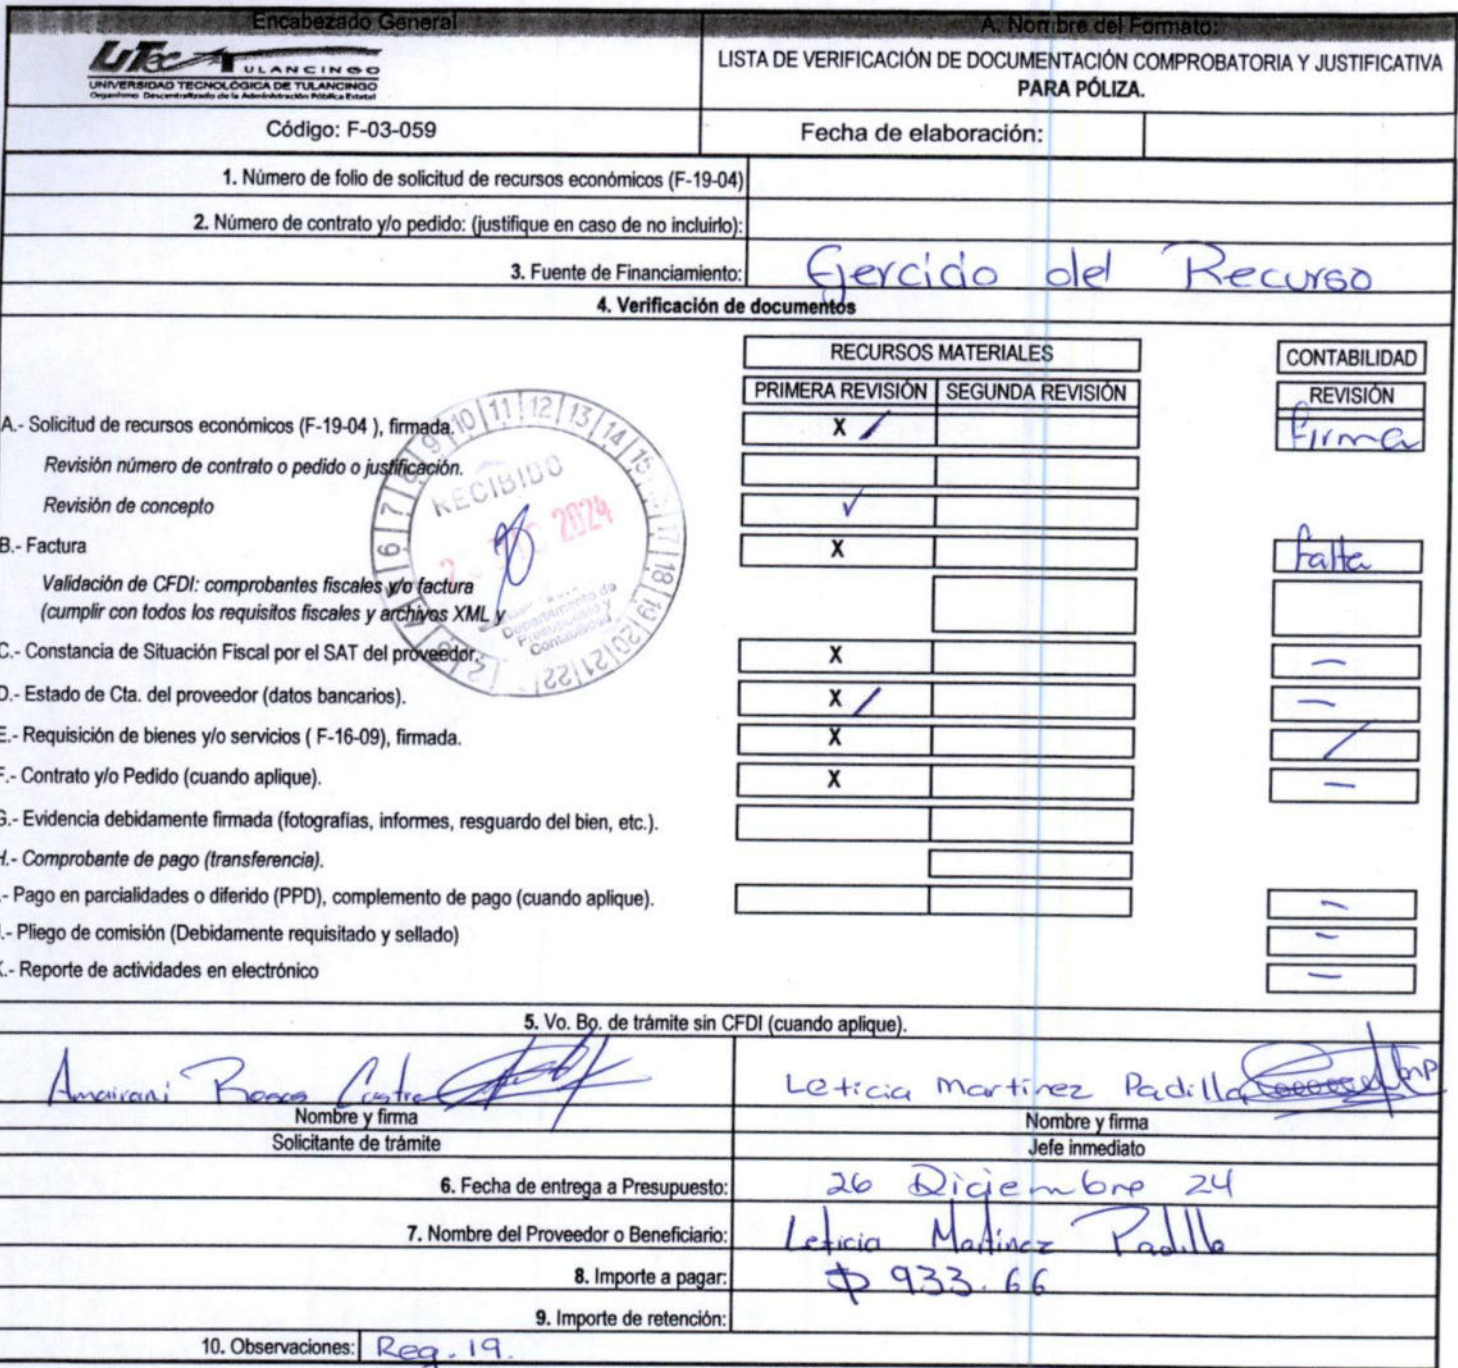 Encabezado General
A. Nombre del Formato:
UTec TULANCINGO
UNIVERSIDAD TECNOLÓGICA DE TULANCINGO
Organismo Descentralizado de la Administración Pública Estatal
LISTA DE VERIFICACIÓN DE DOCUMENTACIÓN COMPROBATORIA Y JUSTIFICATIVA
PARA PÓLIZA.
Código: F-03-059
Fecha de elaboración:
1. Número de folio de solicitud de recursos económicos (F-19-04)
2. Número de contrato y/o pedido: (justifique en caso de no incluirlo):
3. Fuente de Financiamiento: Ejercicio del Recurso
4. Verificación de documentos
RECURSOS MATERIALES
CONTABILIDAD
PRIMERA REVISIÓN SEGUNDA REVISIÓN REVISIÓN
A.- Solicitud de recursos económicos (F-19-04 ), firmada. X / firma
Revisión número de contrato o pedido o justificación.
Revisión de concepto ✓
B.- Factura X falta
Validación de CFDI: comprobantes fiscales y/o factura
(cumplir con todos los requisitos fiscales y archivos XML y
C.- Constancia de Situación Fiscal por el SAT del proveedor. X —
D.- Estado de Cta. del proveedor (datos bancarios). X / —
E.- Requisición de bienes y/o servicios ( F-16-09), firmada. X /
F.- Contrato y/o Pedido (cuando aplique). X —
G.- Evidencia debidamente firmada (fotografías, informes, resguardo del bien, etc.).
H.- Comprobante de pago (transferencia).
.- Pago en parcialidades o diferido (PPD), complemento de pago (cuando aplique). —
.- Pliego de comisión (Debidamente requisitado y sellado) —
K.- Reporte de actividades en electrónico —
6 7 8 9 10 11 12 13 14 15 16 17 18 19 20 21 22
RECIBIDO
DIC 2024
Departamento de
Presupuesto y
Contabilidad
5. Vo. Bo. de trámite sin CFDI (cuando aplique).
Amairani Rosas Castro
Leticia Martinez Padilla
Nombre y firma
Nombre y firma
Solicitante de trámite
Jefe inmediato
6. Fecha de entrega a Presupuesto: 26 Diciembre 24
7. Nombre del Proveedor o Beneficiario: Leticia Martinez Padilla
8. Importe a pagar: $ 933.66
9. Importe de retención:
10. Observaciones: Req. 19.